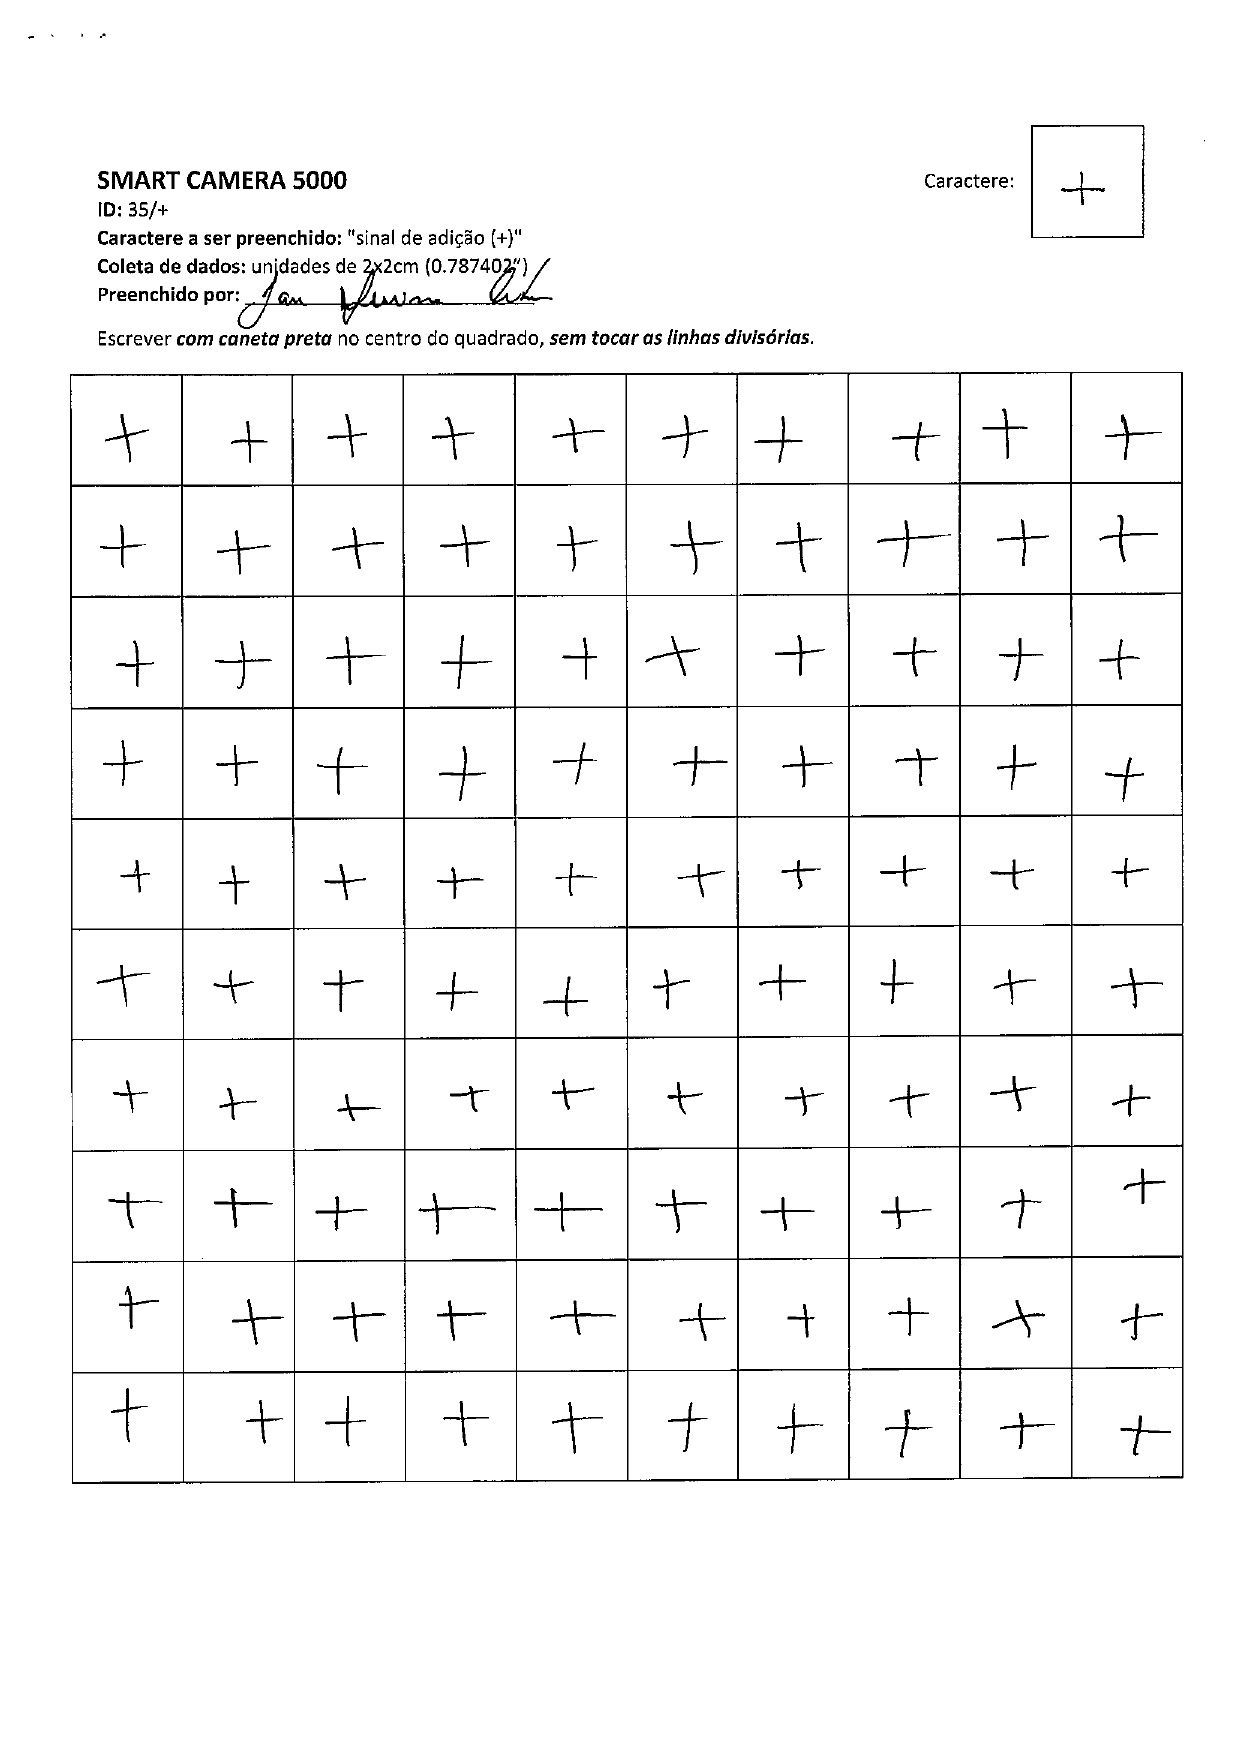 SMART CAMERA 5000
Caractere: +
ID: 35/+
Caractere a ser preenchido: "sinal de adição (+)"
Coleta de dados: unidades de 2x2cm (0.787402")
Preenchido por:
Escrever com caneta preta no centro do quadrado, sem tocar as linhas divisórias.
+ + + + + + + + + +
+ + + + + + + + + +
+ + + + + + + + + +
+ + + + + + + + + +
+ + + + + + + + + +
+ + + + + + + + + +
+ + + + + + + + + +
+ + + + + + + + + +
+ + + + + + + + + +
+ + + + + + + + + +